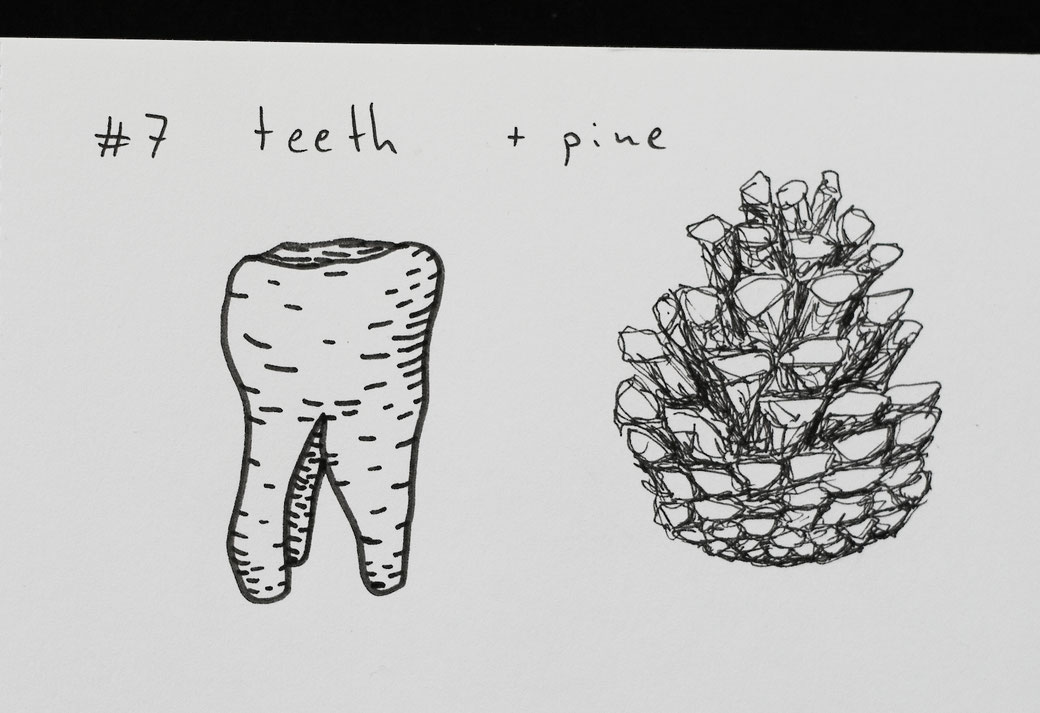 #7 teeth + pine